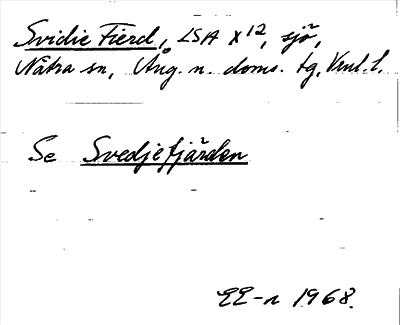 Svidie Fierd, LSA X12, sjö,
Nätra sn, Ång. n. doms. tg, Vnl. l.
Se Svedjefjärden
EE-n 1968.